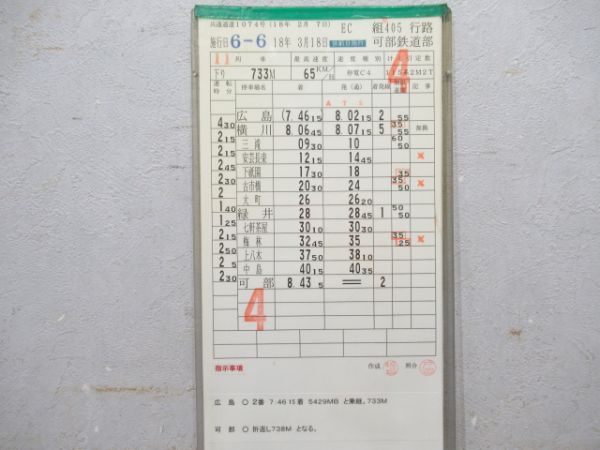 共達過達1074号(18年 2月 7日) EC 組405 行路
施行日 6-6 18年 3月18日 可部鉄道部
列車 最高速度 速度種別 定数
下り 733M 65KM/H 停電C4 115系2M2T
運転時分 停車場名 着 発(通) 着発線 記事
ATS
広島 (7.4615 8.0215 2 55
430 横川 8.0645 8.0715 5 35 50
215 三滝 0930 10 60 50
215 安芸長束 1215 1445 ×
245 下祇園 1730 18 35
230 古市橋 2030 24 50 ×
2 大町 26 2620
140 緑井 28 2845 1 50 50
125 七軒茶屋 3010 3030
215 梅林 3245 35 35 25 ×
250 上八木 3750 3810
2 5 中島 4015 4035
230 可部 8.43 5 ═ 2
4
指示事項 作成 照合
広島 ○ 2番 7:46 15着 5429MB と乗継。733M
可部 ○ 折返し738M となる。